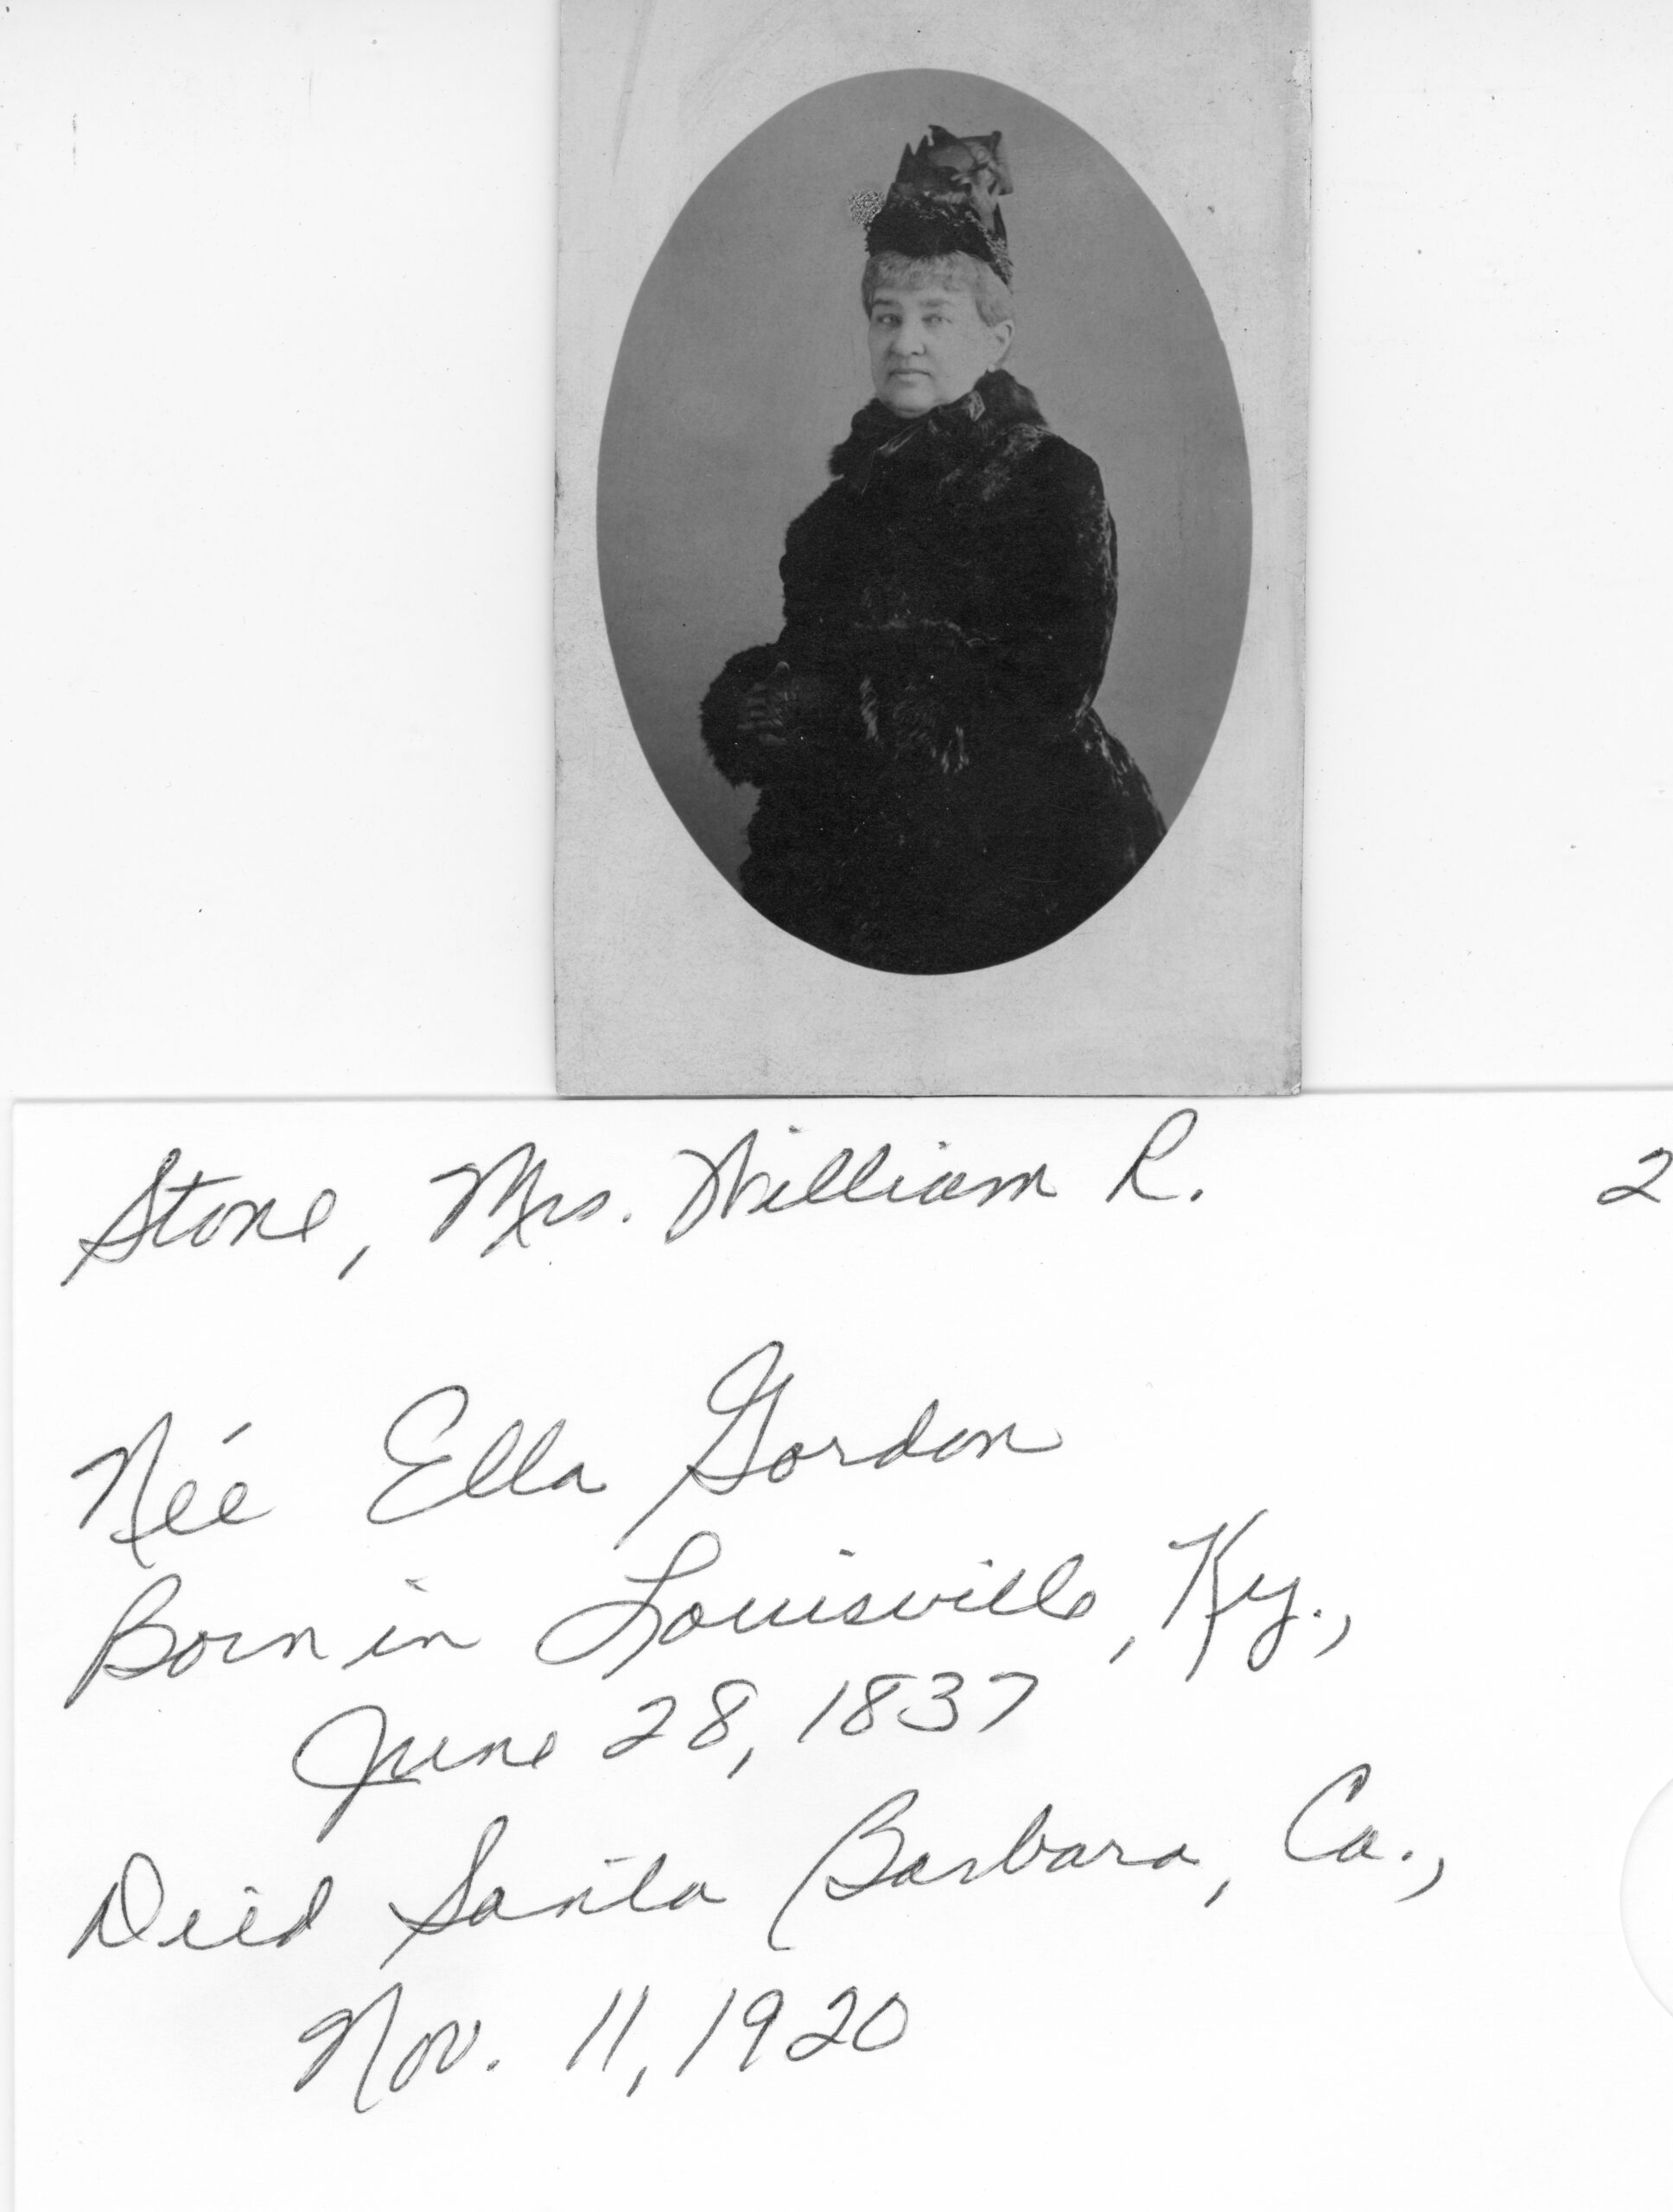 Stone, Mrs. William R. 2
Née Ella Gordon
Born in Louisville, Ky.,
June 28, 1837
Died Santa Barbara, Ca.,
Nov. 11, 1920